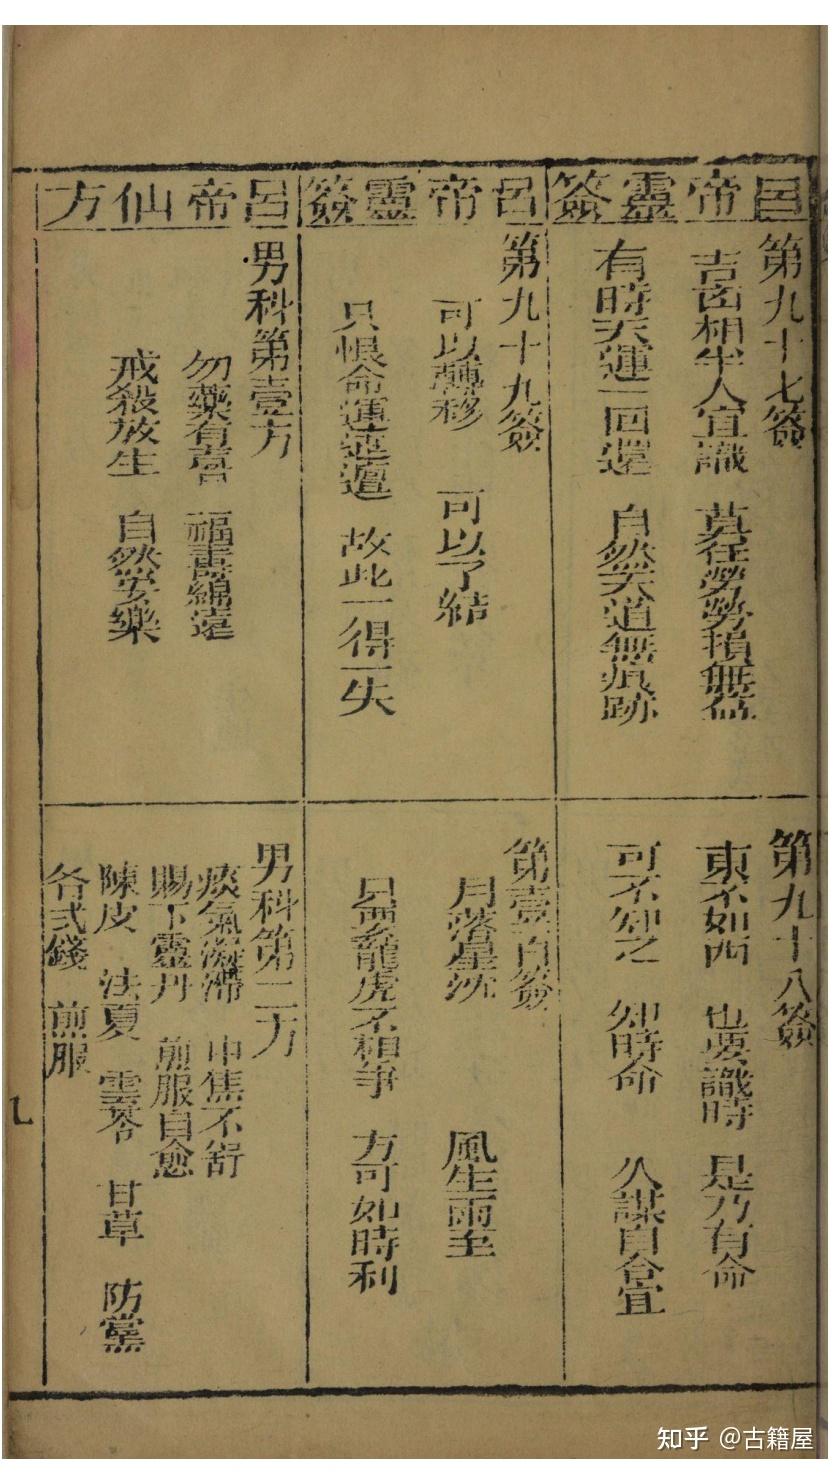 呂帝靈籤
第九十七籤
吉凶相半人宜識　莫在勞勞損無益
有時天運一回還　自然天道無痕跡
第九十八籤
東不如西　也要識時　是乃有命
可不知之　知時命　人謀自合宜
呂帝靈籤
第九十九籤
可以轉移　可以了結
只恨命運迍邅　故此一得一失
第壹百籤
月落星沈　風生雨至
只要龍虎不相爭　方可如時利
呂帝仙方
男科第壹方
勿藥有喜　福壽綿遠
戒殺放生　自然安樂
男科第二方
痰氣凝滯　中焦不舒
賜下靈丹　煎服自愈
陳皮　法夏　雲苓　甘草　防黨
各弍錢　煎服
知乎 @古籍屋